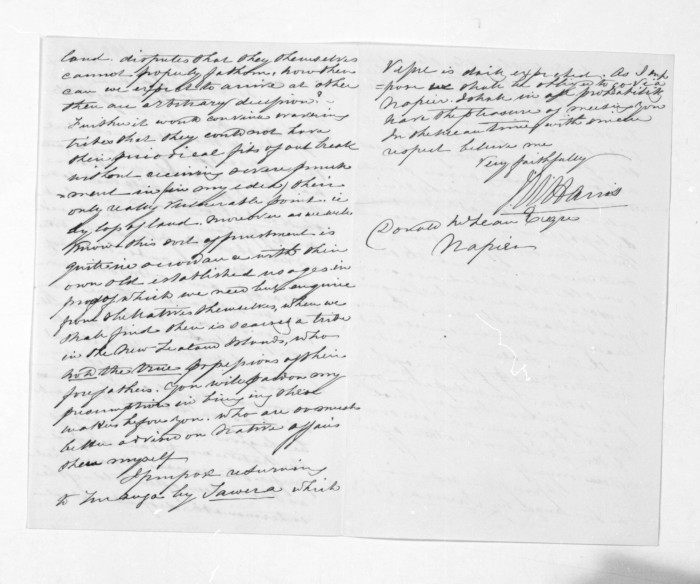 land disputes that they themselves
cannot properly fathom, how then
can we expect to arrive at other
then an arbitrary decision?
Further it would convince warring
tribes that they could not have
their periodical fits of outbreak
without receiving severe punish
-ment in (in my idea) their
only really vulnerable point ie
by loss of land. Moreover as we all
know this sort of punishment is
quite in accordance with their
own old established usages in
proof of which we need but enquire
from the Natives themselves, when we
shall find there is scarcely a tribe
in the New Zealand Islands, who
hold the true possessions of their
forefathers. You will pardon my
presumption in bringing these
matters before you. who are so much
better advised on Native affairs
then myself
I purpose returning
to Turanga by Tawera which
Vessel is daily expected. As I sup
=pose we shall be obliged to go via
Napier. I shall in all probability
have the pleasure of meeting you
In the mean time with sincere
respect believe me
Very faithfully
JW Harris
Donald McLean Esqre
Napier